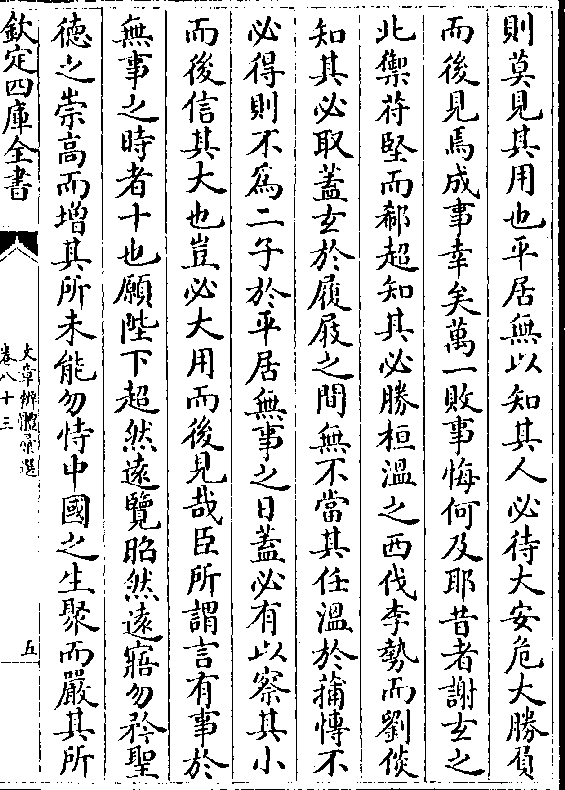 則莫見其用也平居無以知其人必待大安危大勝負
而後見焉成事幸矣萬一敗事悔何及耶昔者謝玄之
北禦苻堅而郗超知其必勝桓温之西伐李勢而劉倓
知其必取蓋玄於履屐之間無不當其任温於蒱博不
必得則不為二子於平居無事之日蓋必有以察其小
而後信其大也豈必大用而後見哉臣所謂言有事於
無事之時者十也願陛下超然逺覽昭然逺寤勿矜聖
徳之崇髙而增其所未能勿恃中國之生聚而嚴其所
欽定四庫全書
文章辨體彚選
卷八十三
五